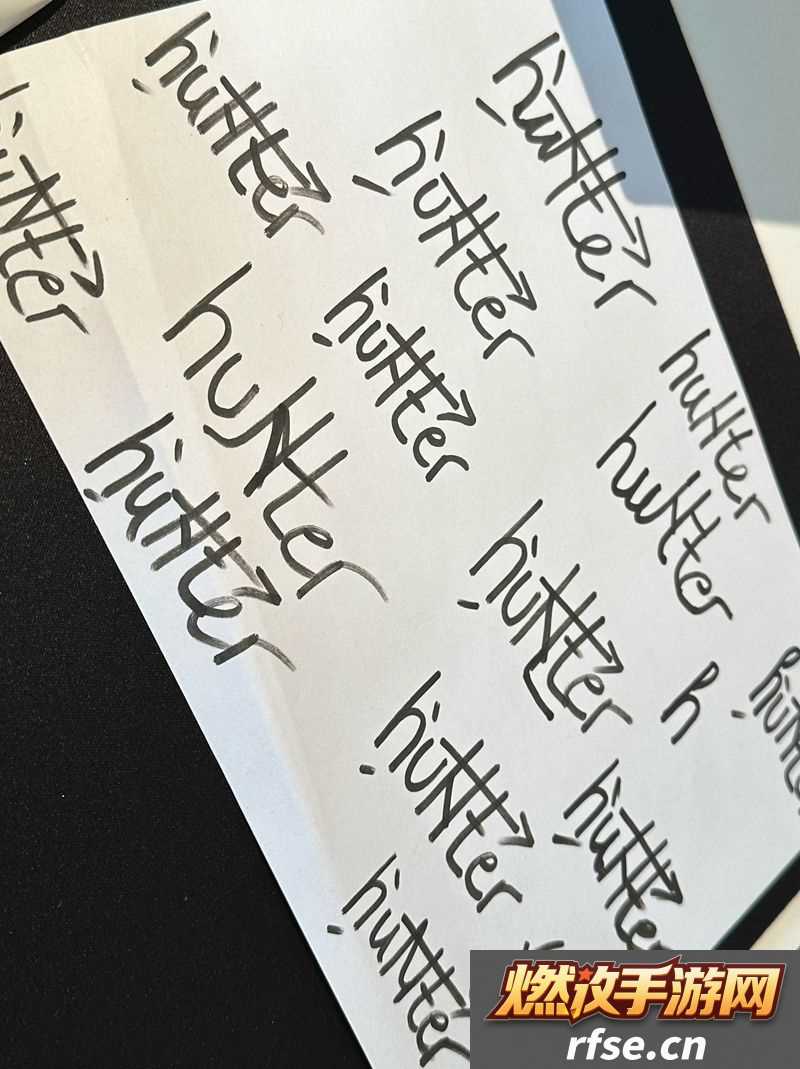 hunter
hunter
hunter
hunter
hunter
hunter
hunter
hunter
hunter
hunter
hunter
h
hunter
hunter
hunter
燃放手游网
rfse.cn